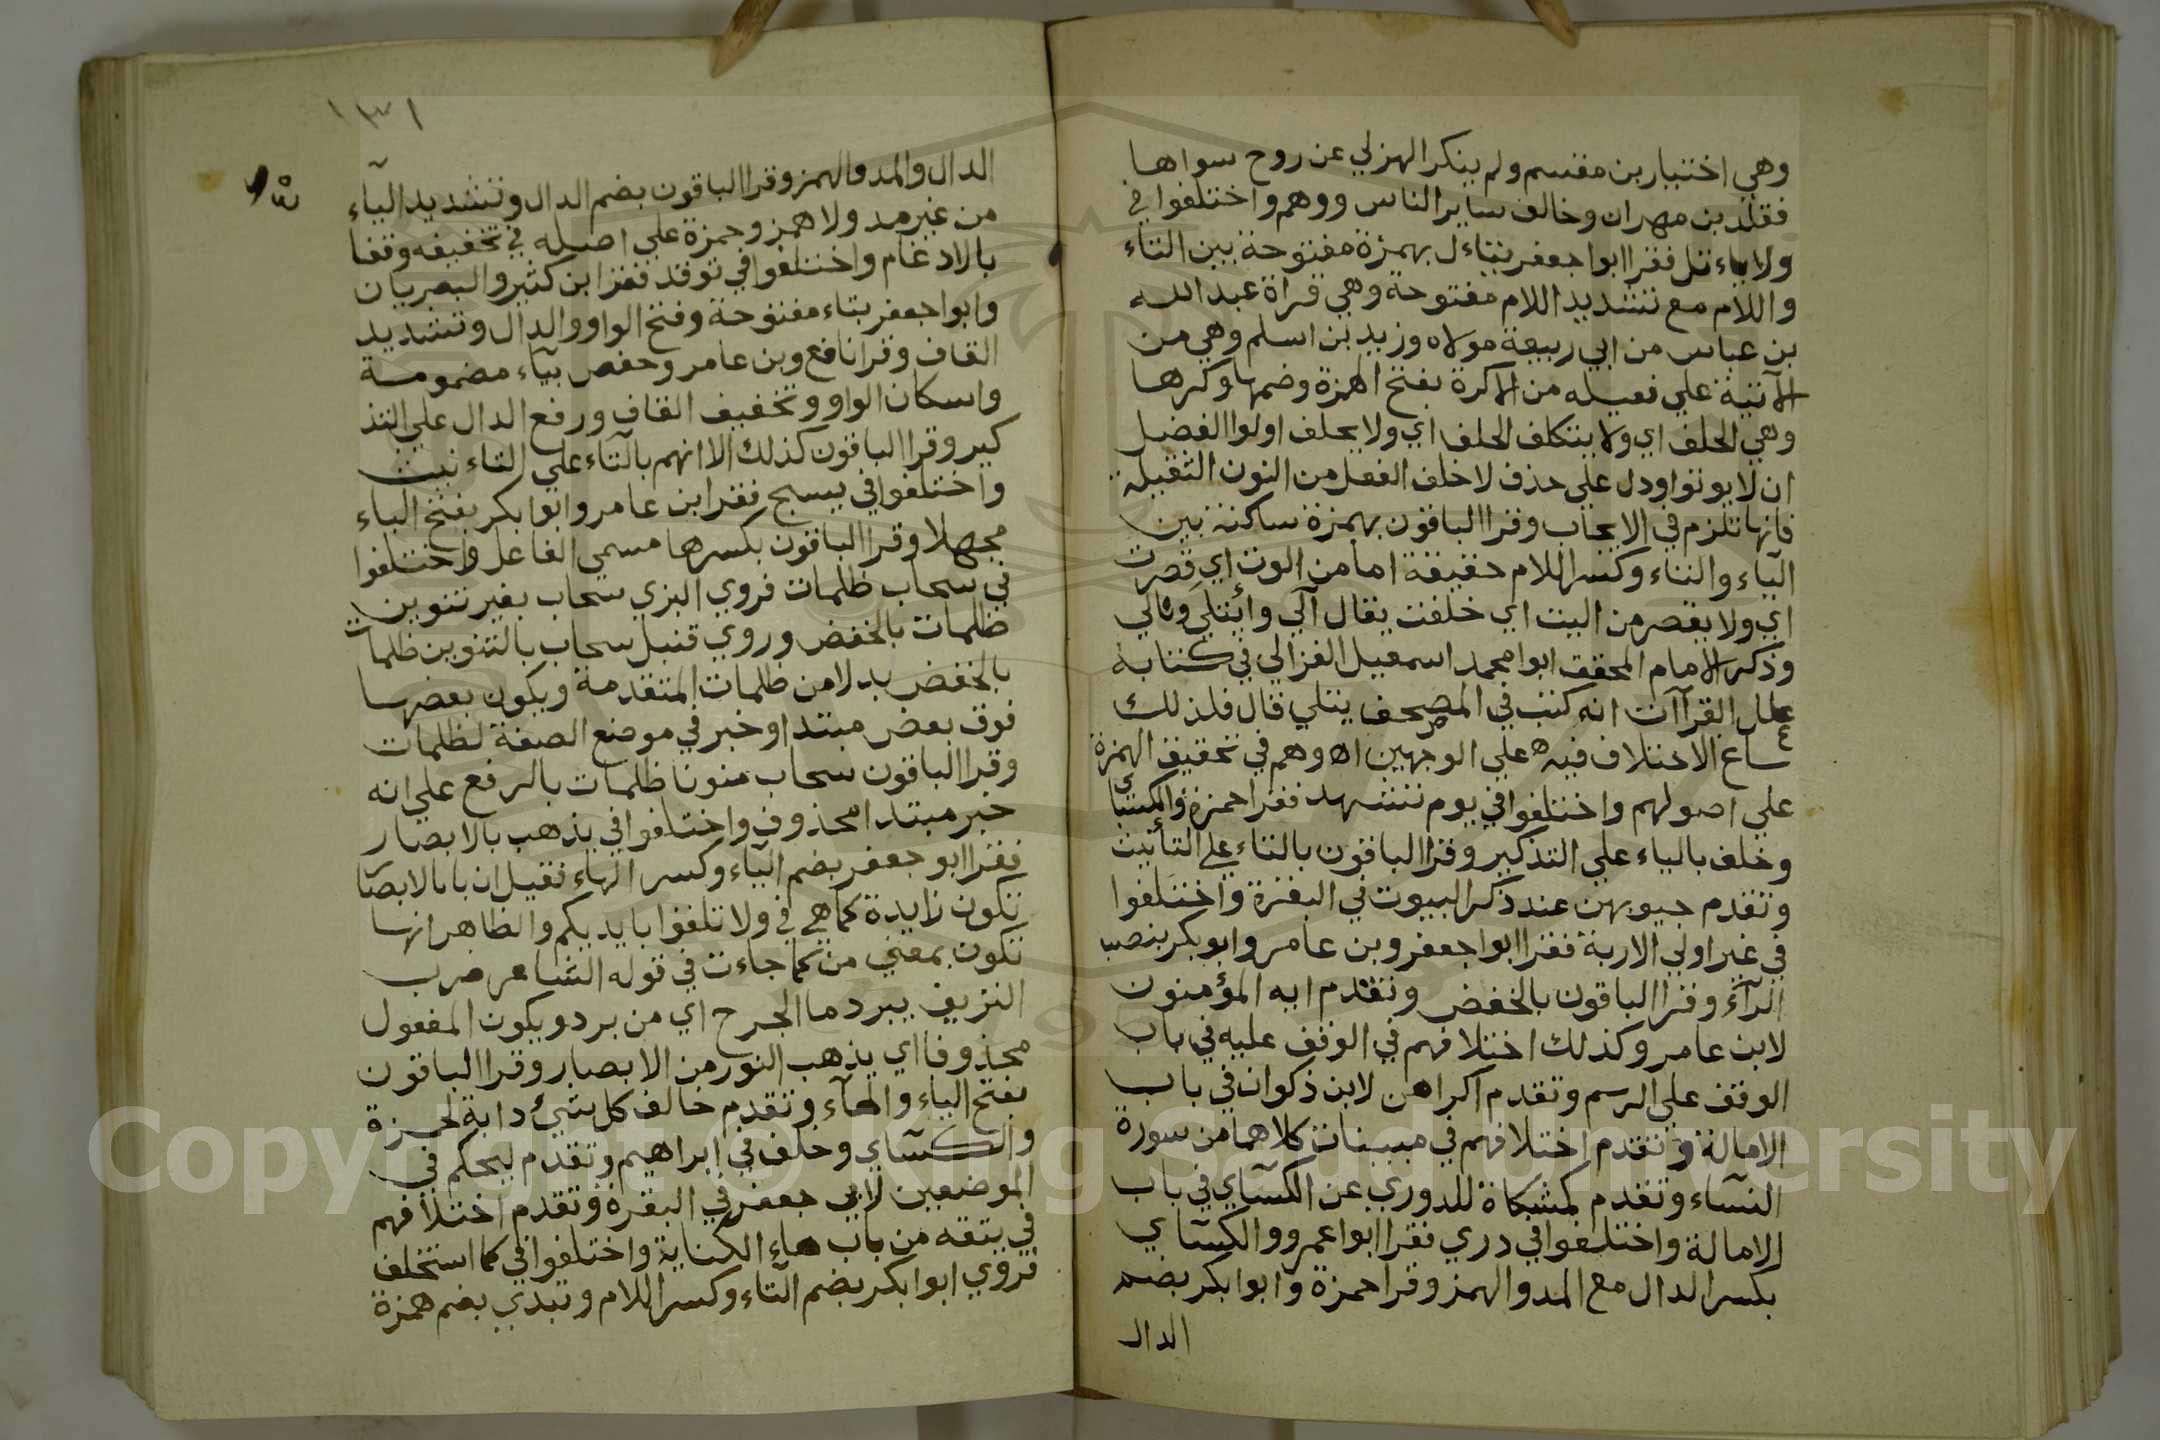 وهي اختيار بن مقسم ولم ينكر الهزلي عن روح سواها
فقلد بن مهران وخالف ساير الناس ووهم واختلفوا في
ولا ياءتل فقرا ابوا جعفر يتاءل بهمزة مفتوحة بين التاء
واللام مع تشديد اللام مفتوحة وهي قراة عبد الله
بن عباس من ابي ربيعة مولاه وزيد بن اسلم وهي من
الآنية علي فعيله من الاكرة بفتح الهمزة وضمها وكرها
وهي الحلف اي ولا يتكلف الحلف اي ولا يحلف اولوا الفضل
ان لا يوتوا ودل علي حذف لا خلف الفعل من النون الثقيلة
فانها تلزم في الايجاب وقرا الباقون بهمزة ساكنة بين
الياء والتاء وكسر اللام خفيفة اما من الوت اي قصرت
اي ولا يقصر من اليت اي خلفت يقال آلي وائتلي وتالي
وذكر الامام المحقق ابوا محمد اسمعيل الغزالي في كتابه
علل القرآت انه كتب في المصحف يتلي قال فلذلك
ساع الاختلاف فيه علي الوجهين اه وهم في تخفيف الهمزة
علي اصولهم واختلفوا في يوم تشهد فقرا حمزة والكسأ
وخلف بالياء علي التذكير وقرا الباقون بالتاء علي التأنيث
وتقدم جيوبهن عند ذكر البيوت في البقرة واختلفوا
في غير اولي الاربة فقرا ابوا جعفر وبن عامر وابو بكر بنصب
الرآء وقرا الباقون بالخفض وتقدم ايه المؤمنون
لابن عامر وكذلك اختلافهم في الوقف عليه في باب
الوقف علي الرسم وتقدم اكراهن لابن ذكوان في باب
الامالة وتقدم اختلافهم في مبينات كلاهما من سورة
النسآء وتقدم كمشكاة للدوري عن الكسآي في باب
الامالة واختلفوا في دري فقرا ابوا عمرو والكسآي
بكسر الدال مع المد والهمز وقرا حمزة وابوا بكر بضم
الدال
١٣١
الدال والمد والهمز وقرا الباقون بضم الدال وتشديد اليآء
من غير مد ولا همز وحمزة علي اصله في تخفيفه وقفا
بالادغام واختلفوا في توقد فقرا ابن كثير والبصريان
وابوا جعفر بتاء مفتوحة وفتح الواو والدال وتشديد
القاف وقرا نافع وبن عامر وحفص بيآء مضمومة
واسكان الواو وتخفيف القاف ورفع الدال علي التذ
كير وقرا الباقون كذلك الا انهم بالتآء علي التاء نيث
واختلفوا في يسبح فقرا ابن عامر وابوا بكر بفتح الباء
مجهلا وقرا الباقون بكسرها مسمي الفاعل واختلفوا
في سحاب ظلمات فروي البزي سحاب بغير تنوين
ظلمات بالخفض وروي قنبل سحاب بالتنوين ظلمات
بالخفض بدلا من ظلمات المتقدمة ويكون بعضها
فوق بعض مبتدا وخبر في موضع الصفة لظلمات
وقرا الباقون سحاب منونا ظلمات بالرفع علي انه
خبر مبتدا محذوف واختلفوا في يذهب بالابصار
فقرا ابو جعفر بضم اليآء وكسر الهاء فقيل ان با بالابصا
تكون زايدة كما هي في ولا تلقوا بايديكم والظاهر انها
تكون بمعني من كما جاءت في قوله الشاعر ضرب
النزيف يبرد ما الجرح اي من برد ويكون المفعول
محذوفا اي يذهب النور من الابصار وقرا الباقون
بفتح الياء والهآء وتقدم خالف كل شيئ دابة لحمزة
والكسآي وخلف في ابراهيم وتقدم ليحكم في
الموضعين لابي جعفر في البقرة وتقدم اختلافهم
في يتقه من باب هاء الكناية واختلفوا في كما استخلف
فروي ابوا بكر بضم التآء وكسر اللام ويبدي بضم همزة
Copyright © King Saud University